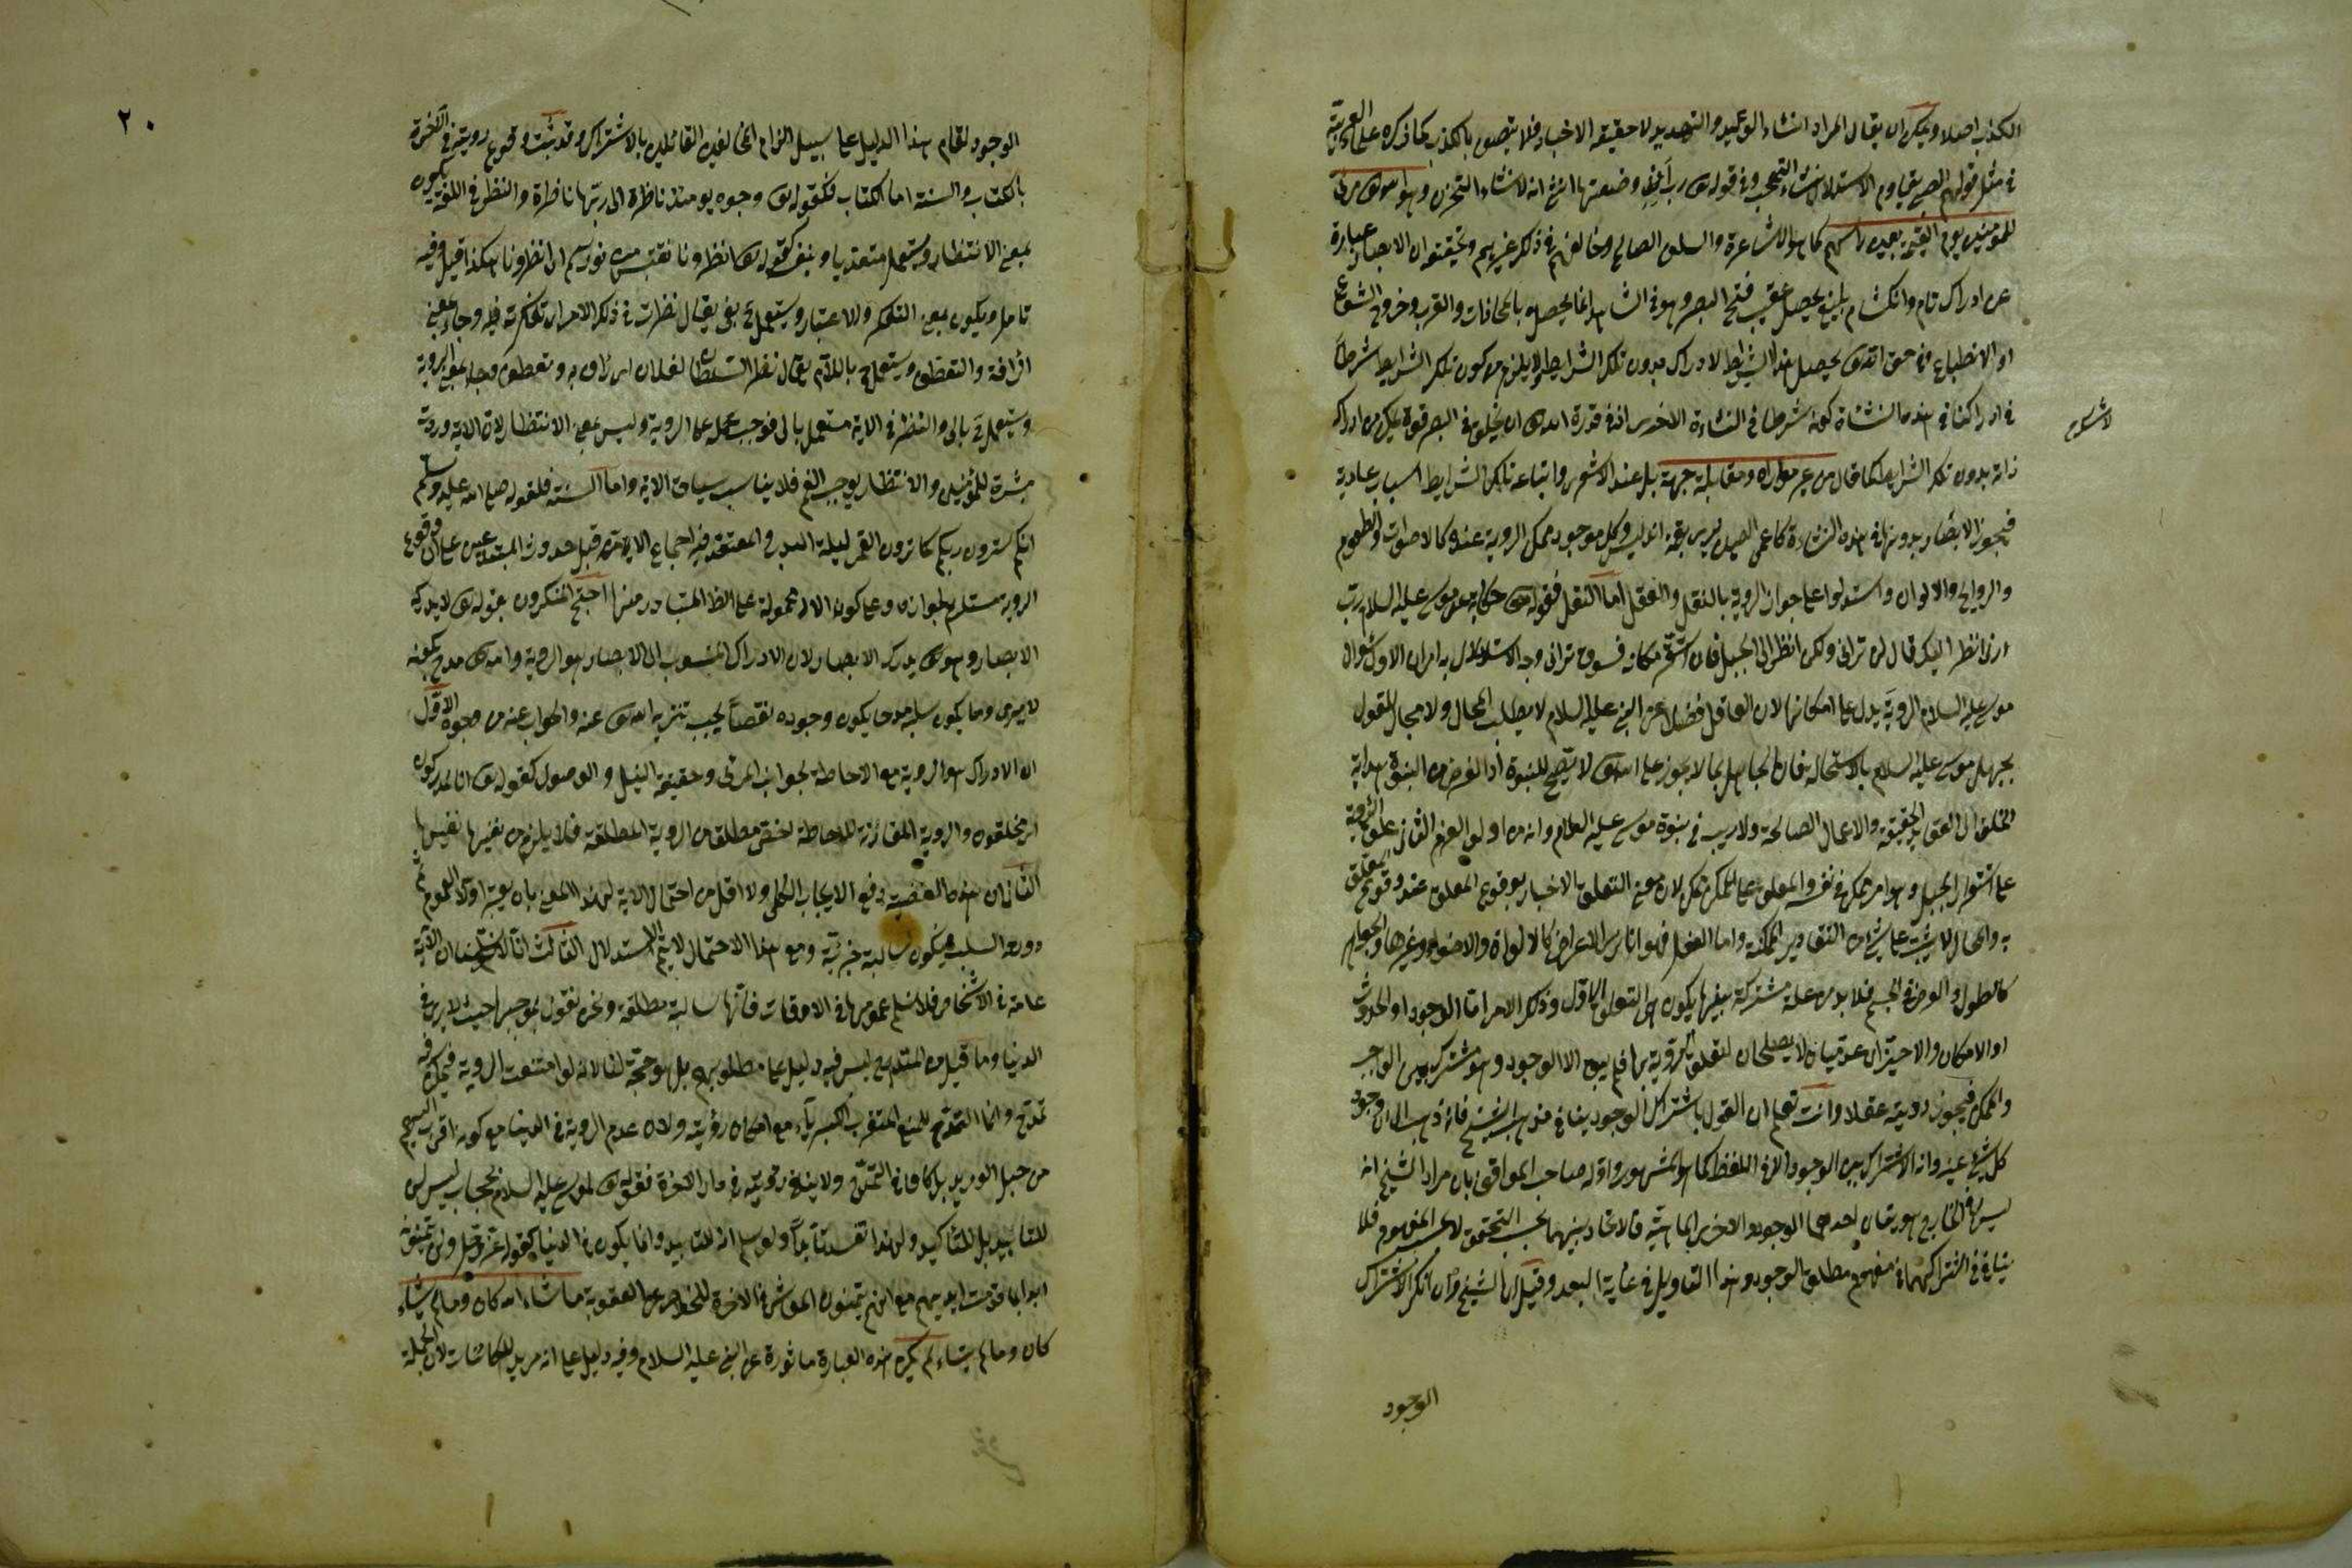 الكذب اصلا ويمكن ان يقال المراد انشاء الوعيد والتهديد لا حقيقة الاخبار فلا يتصف بالكذب كما ذكره علماء العربية
في مثل قولهم الاستدلال انشاء التعجب وفي قوله تع رب اني وضعتها انثى انه لانشاء التحزن وهو تع مرئى
للمؤمنين يوم القيمة بعين رأسهم كما هو الاشاعرة والسلف الصالح وخالفهم في ذلك غيرهم وتحقيقه ان الابصار عبارة
عن ادراك تام وانكشاف بليغ يحصل عقيب فتح البصر وهو في الشاهد انما يحصل بالمحاذات والقرب وخروج الشعاع
او الانطباع وفي حق الله تع يحصل هذا الادراك بدون تلك الشرايط ولا يلزم من كون تلك الشرايط شرطا
في ادراكنا في هذه النشأة كونه شرطا في النشاءة الاخرى اذ في قدرة الله تع ان يخلق في البصر قوة يمكن من ادراك
ذاته بدون تلك الشرايط كما قال من غير موازاة ومقابلة جهة بل عند الاشعرى واتباعه تلك الشرايط اسباب عادية
فيجوز الابصار بدونها في هذه النشاءة كاعمى الصين يرى بقة اندلس وكل موجود ممكن الروية عنده كالاصوات والطعوم
والروايح والالوان واستدلوا على جواز الروية بالنقل والعقل اما النقل فقوله تع حكاية عن موسى عليه السلام رب
ارنى انظر اليك قال لن ترانى ولكن انظر الى الجبل فان استقر مكانه فسوف ترانى وجه الاستدلال به امران الاول سؤال
موسى عليه السلام الروية يدل على امكانها لان العاقل فضلا عن النبي عليه السلام لا يطلب المحال ولا مجال للقول
بجهل موسى عليه السلام بالاستحالة فان الجاهل بما لا يجوز على الله تع لا يصلح للنبوة اذ الغرض من النبوة هداية
الخلق الى العقايد الحقيقة والاعمال الصالحة ولا ريب في نبوة موسى عليه السلام وانه من اولى العزم الثانى علق الروية
على استقرار الجبل وهو امر ممكن في نفسه والمعلق على الممكن ممكن لان معنى التعليق الاخبار بوقوع المعلق عند وقوع المعلق
به والمحال لا يثبت على شئ من التقادير الممكنة واما العقل فهو انا نرى الاعراض كالالوان والاضواء وغيرها والجواهر
كالطول والعرض في الجسم فلا بد من علة مشتركة بينهما يكون هي المتعلق الاول وذلك الامر اما الوجود او الحدوث
او الامكان والاخيران عدميان لا يصلحان لتعلق الروية بهما فلم يبق الا الوجود وهو مشترك بين الواجب
والممكن فيجوز رويته عقلا وانت تعلم ان القول باشتراك الوجود ينافى مذهب الشيخ فانه ذهب الى ان وجود
كل شئ عينه وانه لا اشتراك بين الوجودات الا في اللفظ كما هو المشهور واوله صاحب المواقف بان مراد الشيخ انه
ليس في الخارج هويتان احدهما الوجود والاخر الماهية فالاتحاد بينهما بحسب التحقق لا بحسب المفهوم فلا
ينافى اشتراكهما في مفهوم مطلق الوجود وهذا التاويل في غاية البعد وقيل ان الشيخ وان انكر الاشتراك
الوجود
٢٠
الوجود لقام هذا الدليل على سبيل الزام المخالفين القائلين بالاشتراك وقد ثبت وقوع رويته في الآخرة
بالكتاب والسنة اما الكتاب فكقوله تع وجوه يومئذ ناضرة الى ربها ناظرة والنظر في اللغة يكون
بمعنى الانتظار ويستعمل متعديا بنفسه كقوله تع انظرونا نقتبس من نوركم اى انظرونا هكذا قيل وفيه
تامل ويكون بمعنى التفكر والاعتبار ويستعمل بفى يقال نظرت في ذلك الامر اى تفكرت فيه وجاء بمعنى
الرأفة والتعطف ويستعمل باللام يقال نظر السلطان لفلان اى رأف به وتعطف وجاء بمعنى الروية
ويستعمل بالى والنظر في الاية مستعمل بالى فوجب حمله على الروية وليس بمعنى الانتظار لان الاية وردت
مبشرة للمؤمنين والانتظار يوجب الغم فلا يناسب سياق الاية واما السنة فلقوله صلى الله عليه وسلم
انكم سترون ربكم كما ترون القمر ليلة البدر والمعتقد فيه اجماع الامة قبل حدوث المبتدعين على ان وقوع
الروية مستلزم لجوازه وعلى كون الاية محمولة على الظ المتبادر منها احتج المنكرون بقوله تع لا يدركه
الابصار وهو تع يدرك الابصار لان الادراك المنسوب الى الابصار هو الروية والله تع مدح بكونه
لا يرى وما يكون سلبه مدحا يكون وجوده نقصا يجب تنزيه الله تع عنه والجواب عنه من وجوه الاول
ان الادراك هو الروية مع الاحاطة بجوانب المرئى وحقيقة النيل والوصول كقوله تع انا لمدركون
اى ملحقون والروية المقارنة للاحاطة اخص مطلقا من الروية المطلقة فلا يلزم من نفيها نفيها
الثانى ان هذه القضية رفع الايجاب الكلى ولا اقل من احتمال الاية لهذا المعنى بان يعتبر اولا العموم ثم
دورد السلب فيكون سالبة جزئية ومع هذا الاحتمال لا يتم الاستدلال الثالث انا لا نسلم ان الآية
عامة في الاشخاص فلا نسلم عمومها في الاوقات فانها سالبة مطلقة ونحن نقول بموجبها حيث لا يرى في
الدنيا وما قيل من المتمدح ليس فيه دليل على مطلوبهم بل هو حجة لنا لانه لو امتنعت الروية فيمكن فيه
تمدح وانما التمدح للمنع المتفرد بالكبرياء مع امكان رؤيته ولان عدم الروية في الدنيا مع كونه اقرب اليهم
من حبل الوريد بل كاف في التمدح ولا ينافى رويته في دار الآخرة فقوله تع لموسى عليه السلام بحجاب ليس لن
للتابيد بل للتاكيد ولهذا تقيد تابيدا ولو سلم انه للتابيد وانما يكون في الدنيا كقوله عز وجل ولن يتمنوه
ابدا بما قدمت ايديهم مع انهم يتمنون الموت في الاخرة للتخلص من العقوبة ما شاء الله كان وما لم يشاء
كان وما لم يشاء لم يكن هذه العبارة ماثورة عن النبي عليه السلام وفيه دليل على انه مريد للكائنات لان الجملة